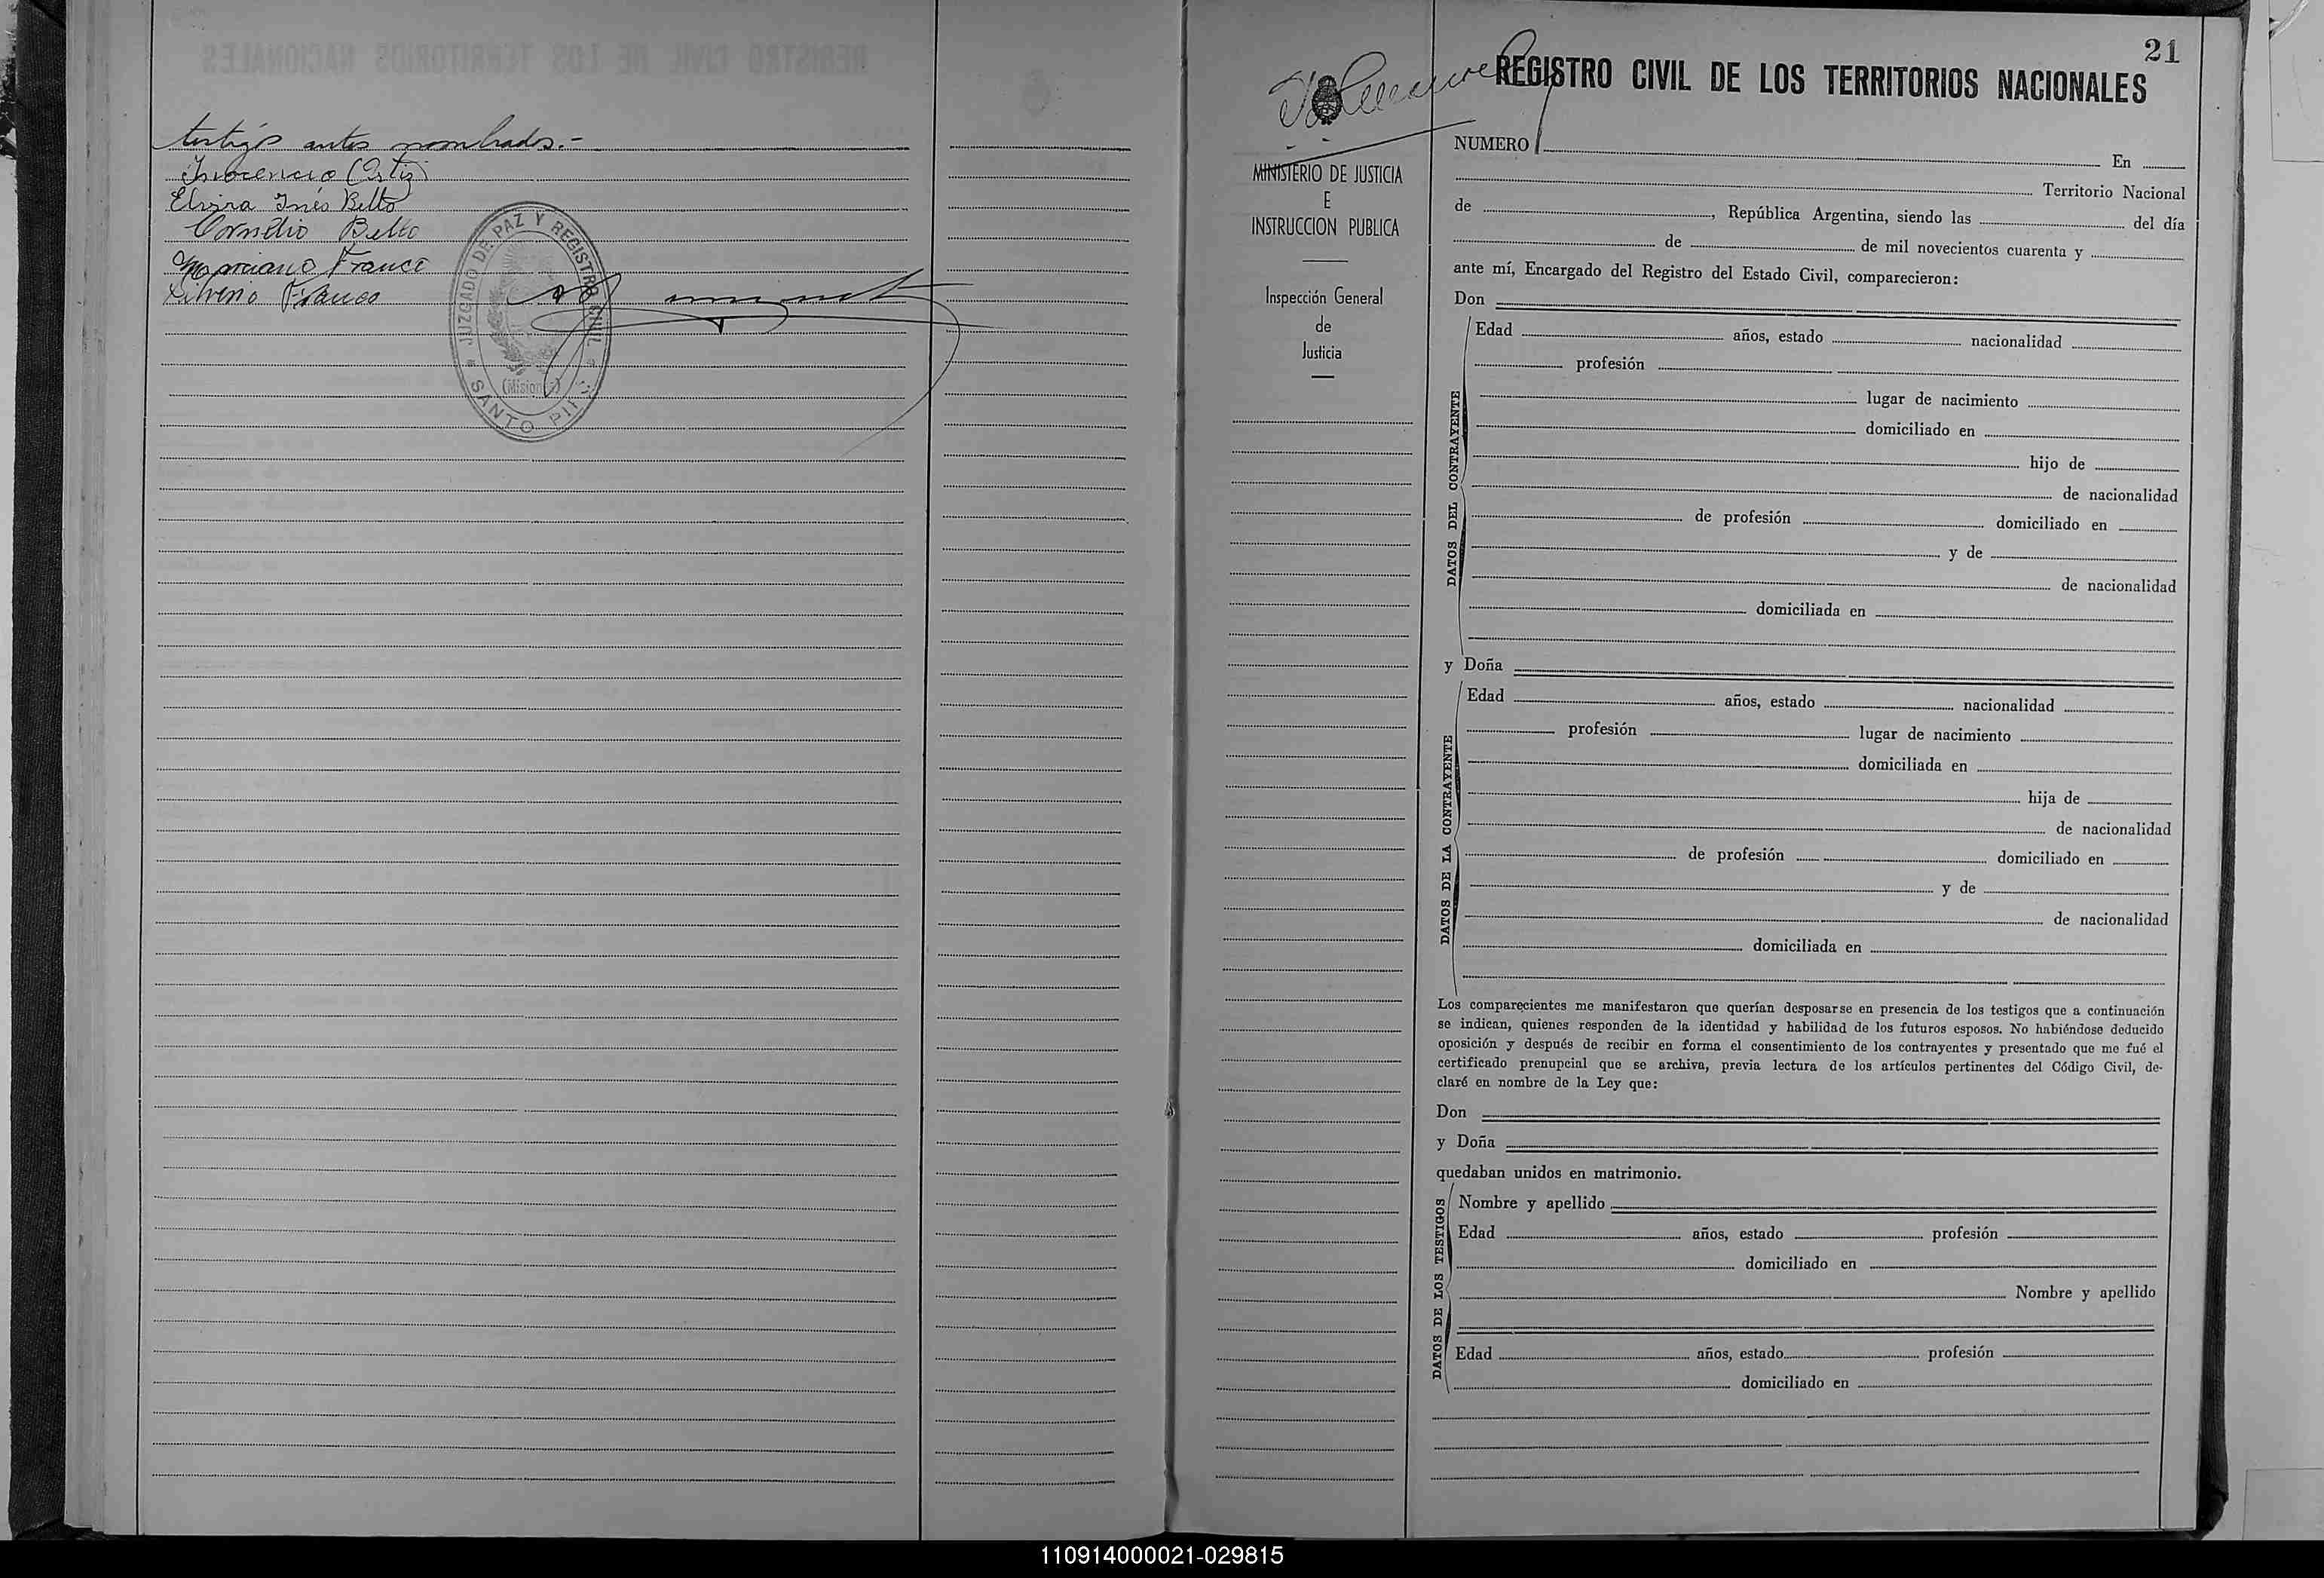 testigos antes nombrados.-
Inocencio Ortiz
Elvira Inés Betto
Cornelio Betto
Marciano Franco
Silverio Franco
JUZGADO DE PAZ Y REGISTRO CIVIL
(Misiones)
SANTO PIPO
21
REGISTRO CIVIL DE LOS TERRITORIOS NACIONALES
MINISTERIO DE JUSTICIA
E
INSTRUCCION PUBLICA
Inspección General
de
Justicia
NUMERO En
Territorio Nacional
de , República Argentina, siendo las del día
de de mil novecientos cuarenta y
ante mí, Encargado del Registro del Estado Civil, comparecieron:
Don
DATOS DEL CONTRAYENTE
Edad años, estado nacionalidad
profesión
lugar de nacimiento
domiciliado en
hijo de
de nacionalidad
de profesión domiciliado en
y de
de nacionalidad
domiciliada en
y Doña
DATOS DE LA CONTRAYENTE
Edad años, estado nacionalidad
profesión lugar de nacimiento
domiciliada en
hija de
de nacionalidad
de profesión domiciliado en
y de
de nacionalidad
domiciliada en
Los comparecientes me manifestaron que querían desposarse en presencia de los testigos que a continuación
se indican, quienes responden de la identidad y habilidad de los futuros esposos. No habiéndose deducido
oposición y después de recibir en forma el consentimiento de los contrayentes y presentado que me fué el
certificado prenupcial que se archiva, previa lectura de los artículos pertinentes del Código Civil, de-
claré en nombre de la Ley que:
Don
y Doña
quedaban unidos en matrimonio.
DATOS DE LOS TESTIGOS
Nombre y apellido
Edad años, estado profesión
domiciliado en
Nombre y apellido
Edad años, estado profesión
domiciliado en
110914000021-029815